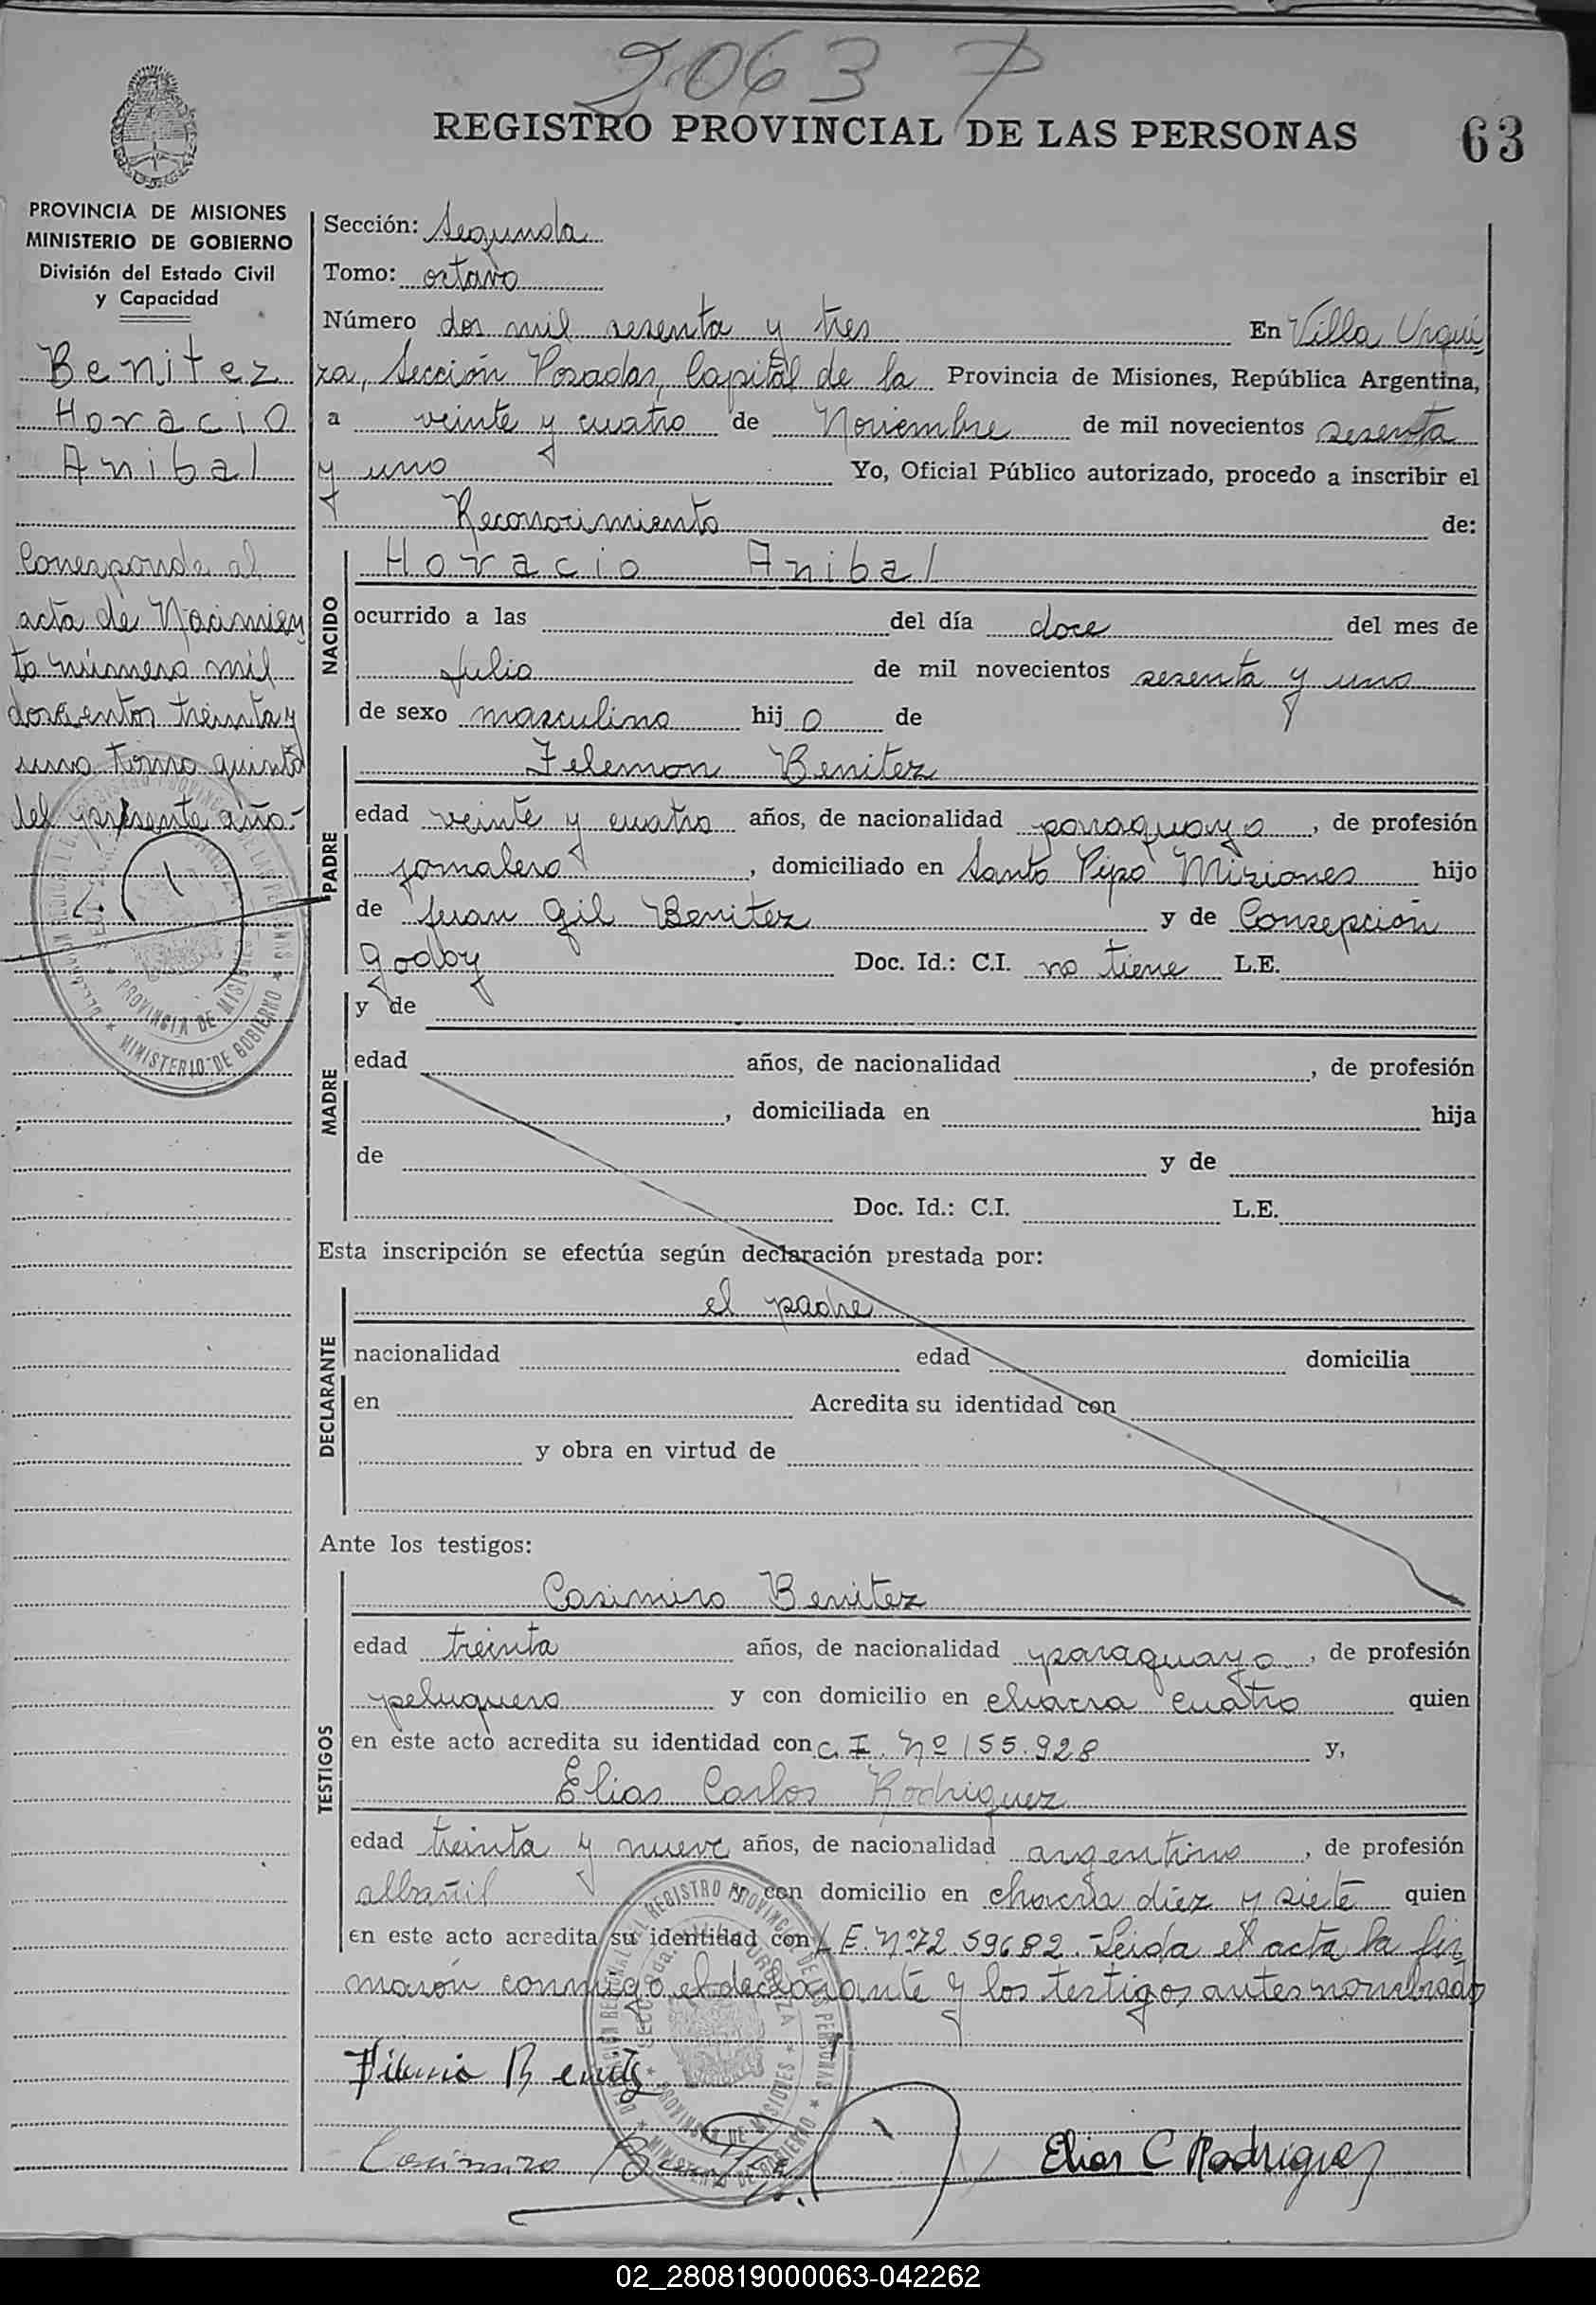 2063 P
REGISTRO PROVINCIAL DE LAS PERSONAS 63
PROVINCIA DE MISIONES
MINISTERIO DE GOBIERNO
División del Estado Civil
y Capacidad
Benitez
Horacio
Anibal
Corresponde al
acta de Nacimien
to número mil
doscientos treinta y
uno tomo quinto
del presente año.-
Sección: Segunda
Tomo: octavo
Número dos mil sesenta y tres En Villa Urqui
za, Sección Posadas, Capital de la Provincia de Misiones, República Argentina,
a veinte y cuatro de Noviembre de mil novecientos sesenta
y uno Yo, Oficial Público autorizado, procedo a inscribir el
Reconocimiento de:
NACIDO
Horacio Anibal
ocurrido a las del día doce del mes de
Julio de mil novecientos sesenta y uno
de sexo masculino hij o de
PADRE
Filemon Benitez
edad veinte y cuatro años, de nacionalidad paraguayo, de profesión
jornalero, domiciliado en Santo Pipo Misiones hijo
de Juan Gil Benitez y de Consepción
Godoy Doc. Id.: C.I. no tiene L.E.
MADRE
y de
edad años, de nacionalidad , de profesión
, domiciliada en hija
de y de
Doc. Id.: C.I. L.E.
Esta inscripción se efectúa según declaración prestada por:
DECLARANTE
el padre
nacionalidad edad domicilia
en Acredita su identidad con
y obra en virtud de
Ante los testigos:
TESTIGOS
Casimiro Benitez
edad treinta años, de nacionalidad paraguayo, de profesión
peluquero y con domicilio en chacra cuatro quien
en este acto acredita su identidad con C. I. Nº 155.928 y,
Elias Carlos Rodriguez
edad treinta y nueve años, de nacionalidad argentino, de profesión
albañil y con domicilio en chacra diez y siete quien
en este acto acredita su identidad con L E. Nº 72 59682.- Leida el acta la fir
maron conmigo el declarante y los testigos antes nombrados
Benitez
Casimiro Benitez
Elias C Rodriguez
PROVINCIA DE MISIONES
MINISTERIO DE GOBIERNO
02_280819000063-042262